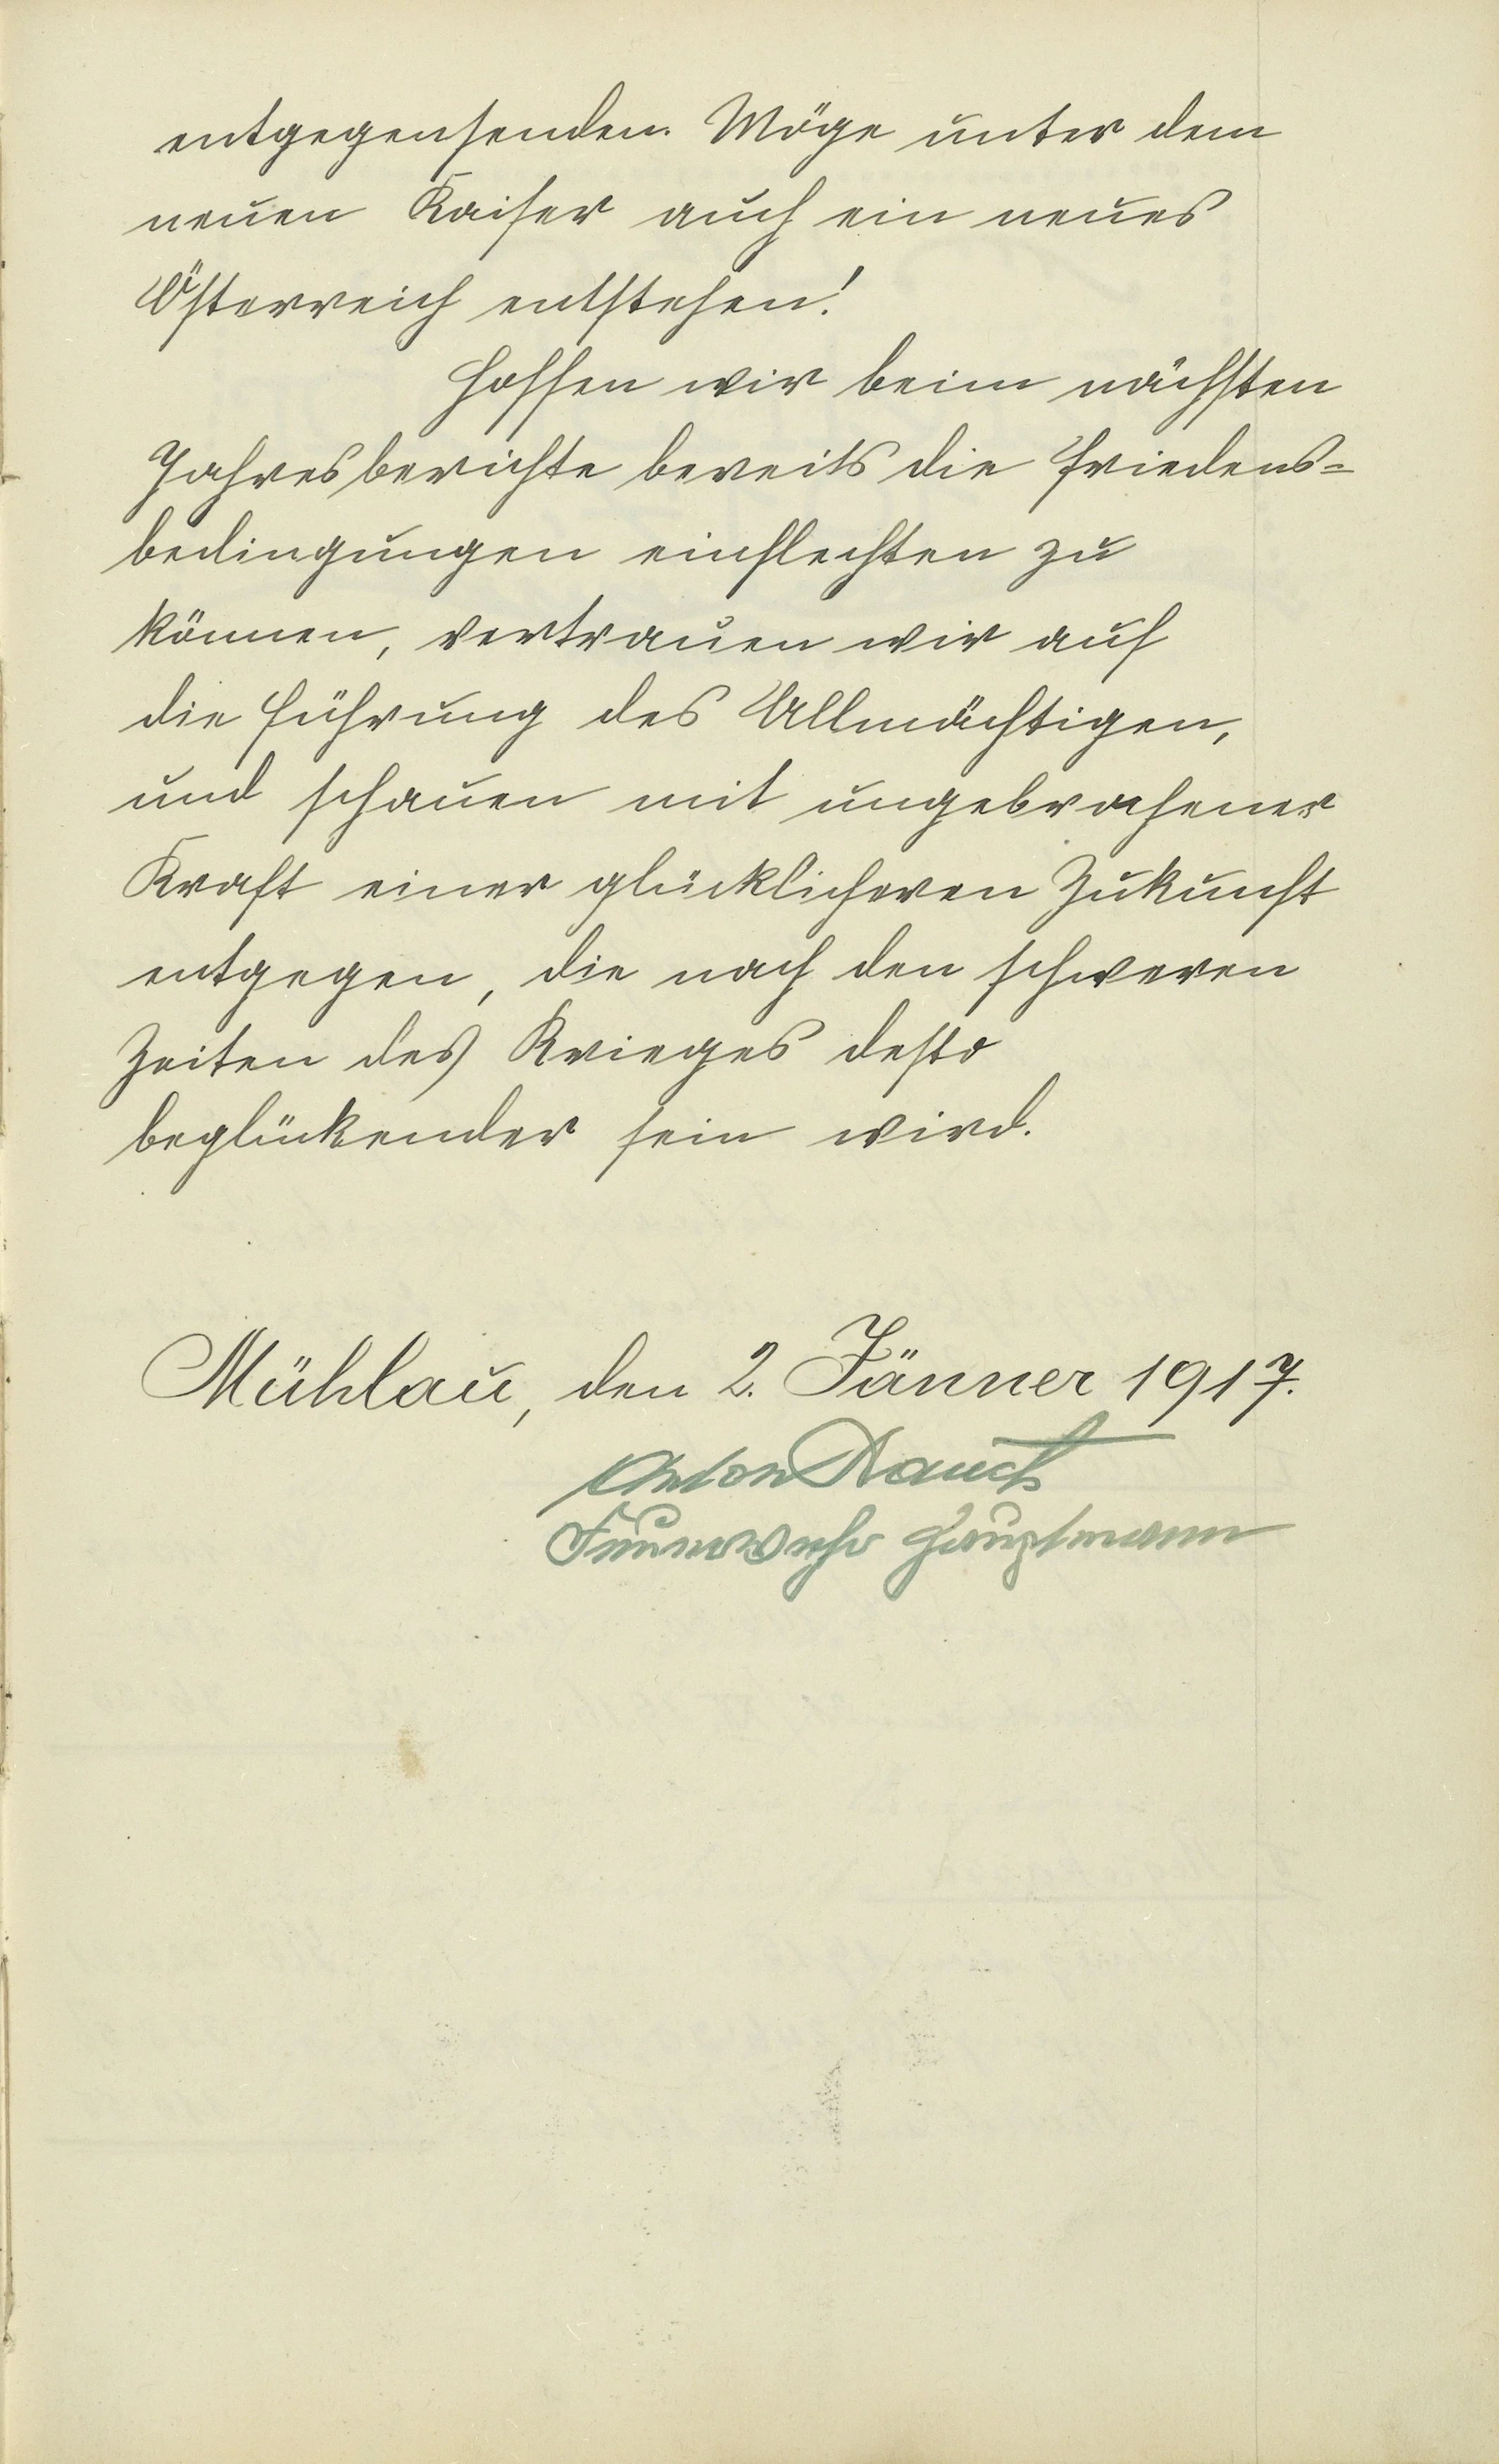 entgegensenden. Möge unter dem
neuen Kaiser auch ein neues
Österreich entstehen!
Hoffen wir beim nächsten
Jahresberichte bereits die Friedens=
bedingungen einflechten zu
können, vertrauen wir auf
die Führung des Allmächtigen,
und schauen mit ungebrochener
Kraft einer glücklicheren Zukunft
entgegen, die nach den schweren
Zeiten des Krieges desto
beglückender sein wird.
Mühlau, den 2. Jänner 1917.
Anton Rauch
Feuerwehr Hauptmann